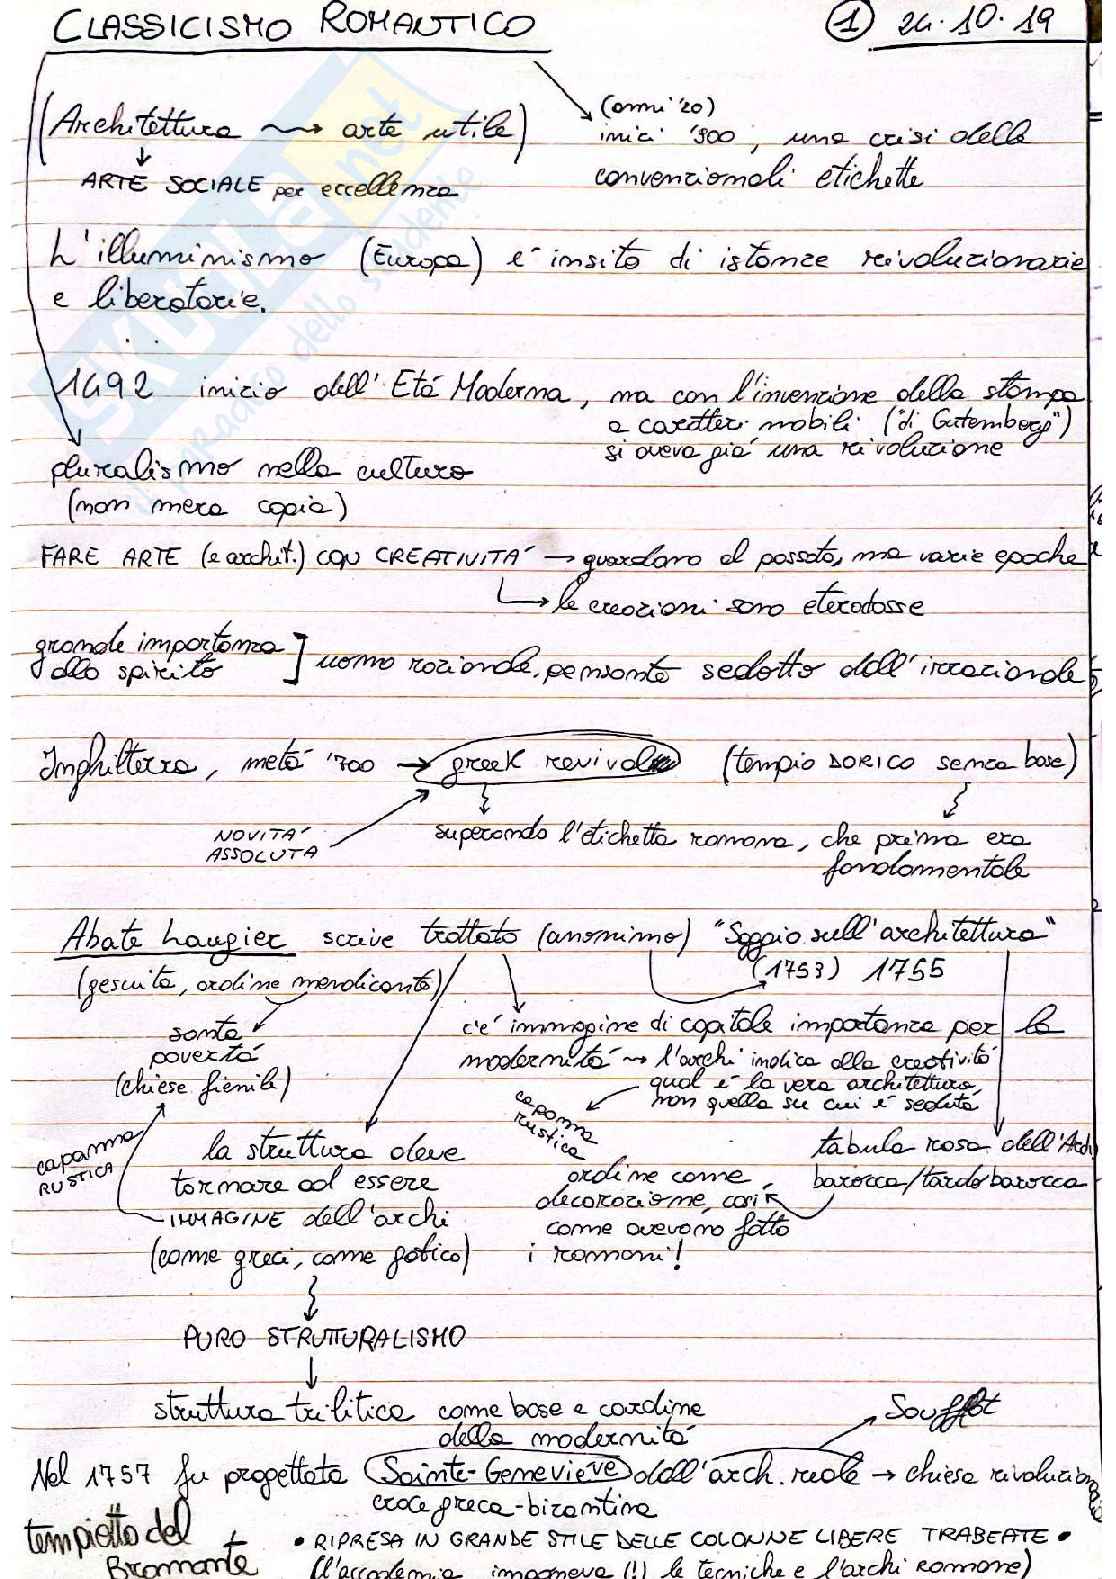 CLASSICISMO ROMANTICO ① 24.10.19
(Architettura ⇝ arte utile) (anni '20)
inizi '900, una crisi delle
ARTE SOCIALE per eccellenza convenzionali etichette
L'illuminismo (Europa) é insito di istanze rivoluzionarie
e liberatorie.
1492 inizio dell'Etá Moderna, ma con l'invenzione della stampa
a caratteri mobili ("di Gutemberg")
si aveva giá una rivoluzione
pluralismo nella cultura
(non mera copia)
FARE ARTE (e archit.) CON CREATIVITÁ → guardano al passato, ma varie epoche
↳ le creazioni sono eterodosse
grande importanza
allo spirito ] uomo razionale, pensante sedotto dall'irrazionale
Inghilterra, metá '700 → greek revival (tempio DORICO senza base)
NOVITÁ
ASSOLUTA
superando l'etichetta romana, che prima era
fondamentale
Abate Laugier scrive trattato (anonimo) "Saggio sull'architettura"
(1753) 1755
(gesuita, ordine mendicante)
santa
povertá
(chiese fienile)
c'é immagine di capitale importanza per la
modernitá ⇝ l'archi indica alla creativitá
qual é la vera architettura,
non quella su cui é seduta
capanna
rustica
capanna
RUSTICA
la struttura deve
tornare ad essere
IMMAGINE dell'archi
(come greci, come gotico)
ordine come
decorazione, così
come avevano fatto
i romani!
tabula rasa dell'Archi
barocca/tardobarocca
PURO STRUTTURALISMO
struttura trilitica come base e cardine
della modernitá
Soufflot
Nel 1757 fu progettata Sainte-Geneviève dall'arch. reale → chiesa rivoluzionaria
croce greca-bizantina
tempietto del
Bramante
• RIPRESA IN GRANDE STILE DELLE COLONNE LIBERE TRABEATE •
(l'accademia imponeva (!) le tecniche e l'archi romane)
SKUOLA.net
il paradiso dello studente